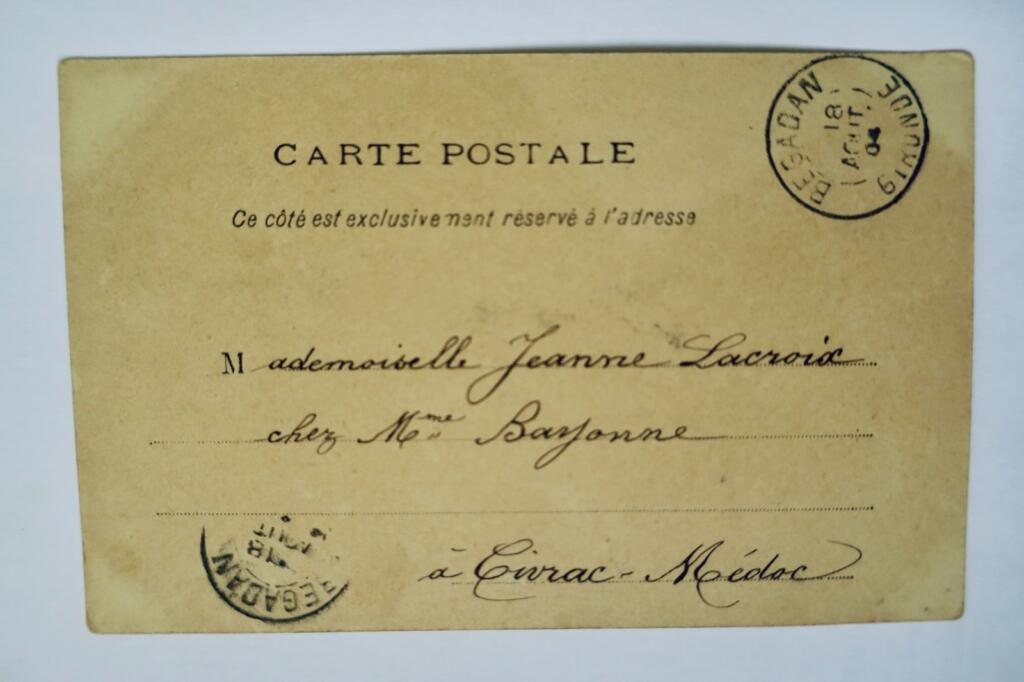 BÉGADAN GIRONDE
18
AOUT.
04
CARTE POSTALE
Ce côté est exclusivement réservé à l'adresse
Mademoiselle Jeanne Lacroix
chez Mme Bayonne
à Civrac-Médoc
BÉGADAN
18
AOUT